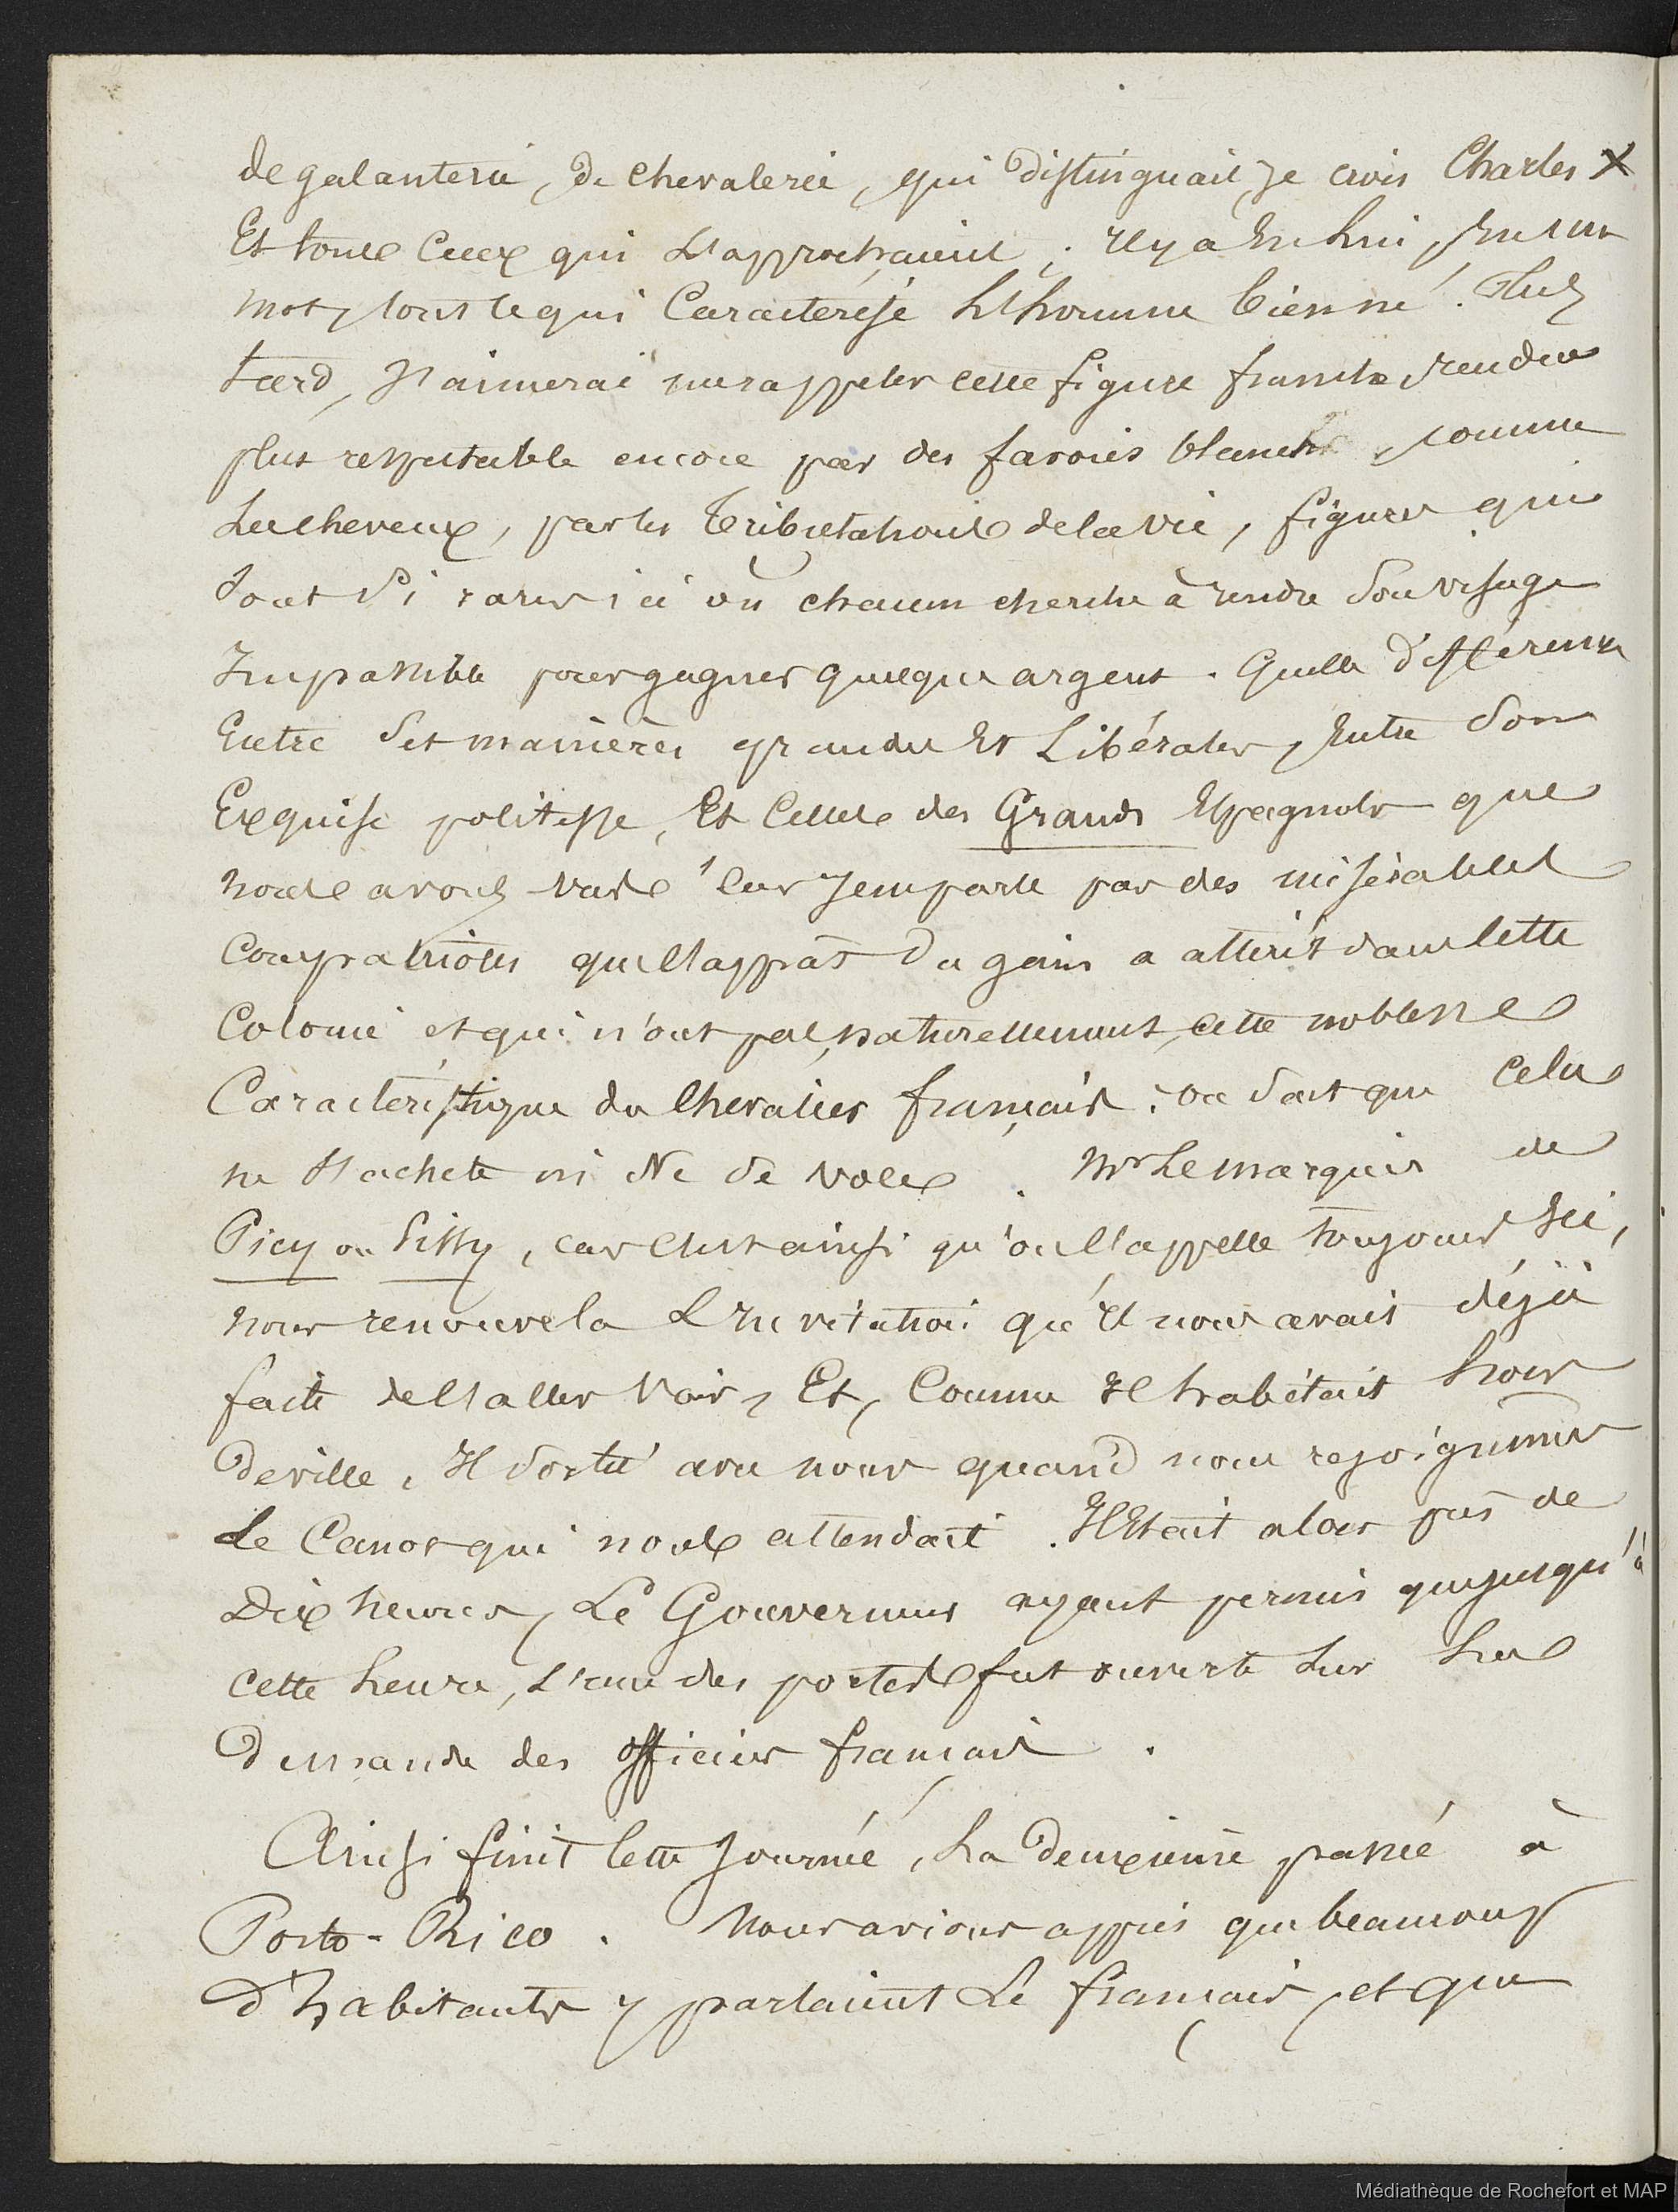 de galanterie, de chevalerie, qui distinguait, je crois Charles X
Et tous Ceux qui L'approchaient ; Il y a En lui, En un
mot, tout ce qui Caractérise L'homme bien né. Plus
tard, J'aimerai me rappeler cette figure franche rendue
plus respectable encore par des favoris blanchis, comme
Les cheveux, par les tribulations de la vie, figures qui
Sont Si rares ici où chacun cherche à rendre Son visage
Impassible pour gagner quelque argent. Quelle différence
Entre Ses manières grandes Et Libérales, Entre Son
Exquise politesse, Et Celles des Grands Espagnols que
nous avons vus ! Car Je ne parle pas des misérables
Compatriotes que l'appât du gain a attirés dans Cette
Colonie et qui n'ont pas, naturellement, cette noblesse
Caractéristique du Chevalier français : on sait que Cela
ne S'achète ni Ne Se vole. Mr Le Marquis de
Picy ou Sissy, car c'est ainsi qu'on l'appelle toujours Ici,
nous renouvela L'Invitation qu'Il nous avait déjà
faite de l'aller voir, Et, Comme Il habitait hors
de ville, Il sortit avec nous quand nous rejoignîmes
Le Canot qui nous attendait. Il Etait alors près de
Dix heures, Le Gouverneur ayant permis que jusqu'à
cette heure, L'une des portes fut ouverte sur La
demande des officiers français.
Ainsi finit cette Journée, La deuxième passée à
Porto-Rico. Nous avions appris que beaucoup
d'habitants y parlaient Le français, et que
Médiathèque de Rochefort et MAP